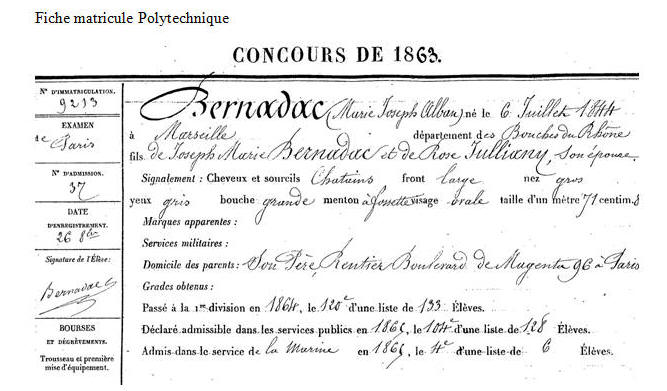 Fiche matricule Polytechnique
CONCOURS DE 1863.
N° D'IMMATRICULATION.
9213
EXAMEN
de Paris
N° D'ADMISSION.
37
DATE
D'ENREGISTREMENT.
26 8bre
Signature de l'Élève:
Bernadac
BOURSES
ET DÉGRÈVEMENTS.
Trousseau et première
mise d'équipement.
Bernadac (Marie Joseph Alban) né le 6 Juillet 1844
à Marseille département des Bouches du Rhône
fils de Joseph Marie Bernadac et de Rose Julliany, son épouse.
Signalement : Cheveux et sourcils Chatains front large nez gros
yeux gris bouche grande menton à fossette visage ovale taille d'un mètre 71 centim. 8
Marques apparentes :
Services militaires :
Domicile des parents : Son Père, Rentier Boulevard de Magenta 96 à Paris
Grades obtenus :
Passé à la 1re division en 1864, le 120e d'une liste de 133 Élèves.
Déclaré admissible dans les services publics en 1865, le 104e d'une liste de 128 Élèves.
Admis dans le service de la Marine en 1865, le 4e d'une liste de 6 Élèves.